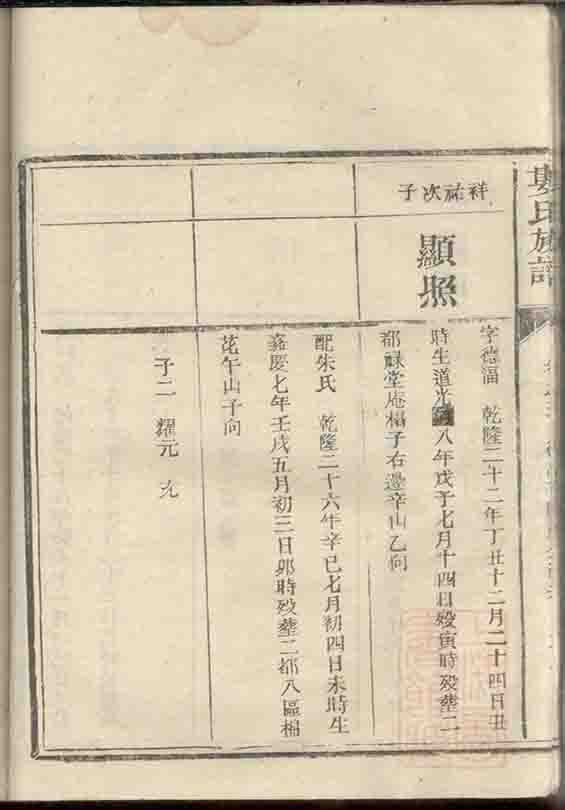 氏族譜
祥祐次子
顯照
字德溫 乾隆二十二年丁丑十二月二十四日丑
時生道光八年戊子七月十四日歿寅時歿塟二
都祿堂庵楊子右邊辛山乙向
配朱氏 乾隆二十六年辛巳七月初四日未時生
嘉慶七年壬戌五月初三日卯時歿塟二都八區棉
花午山子向
子二 耀元 九